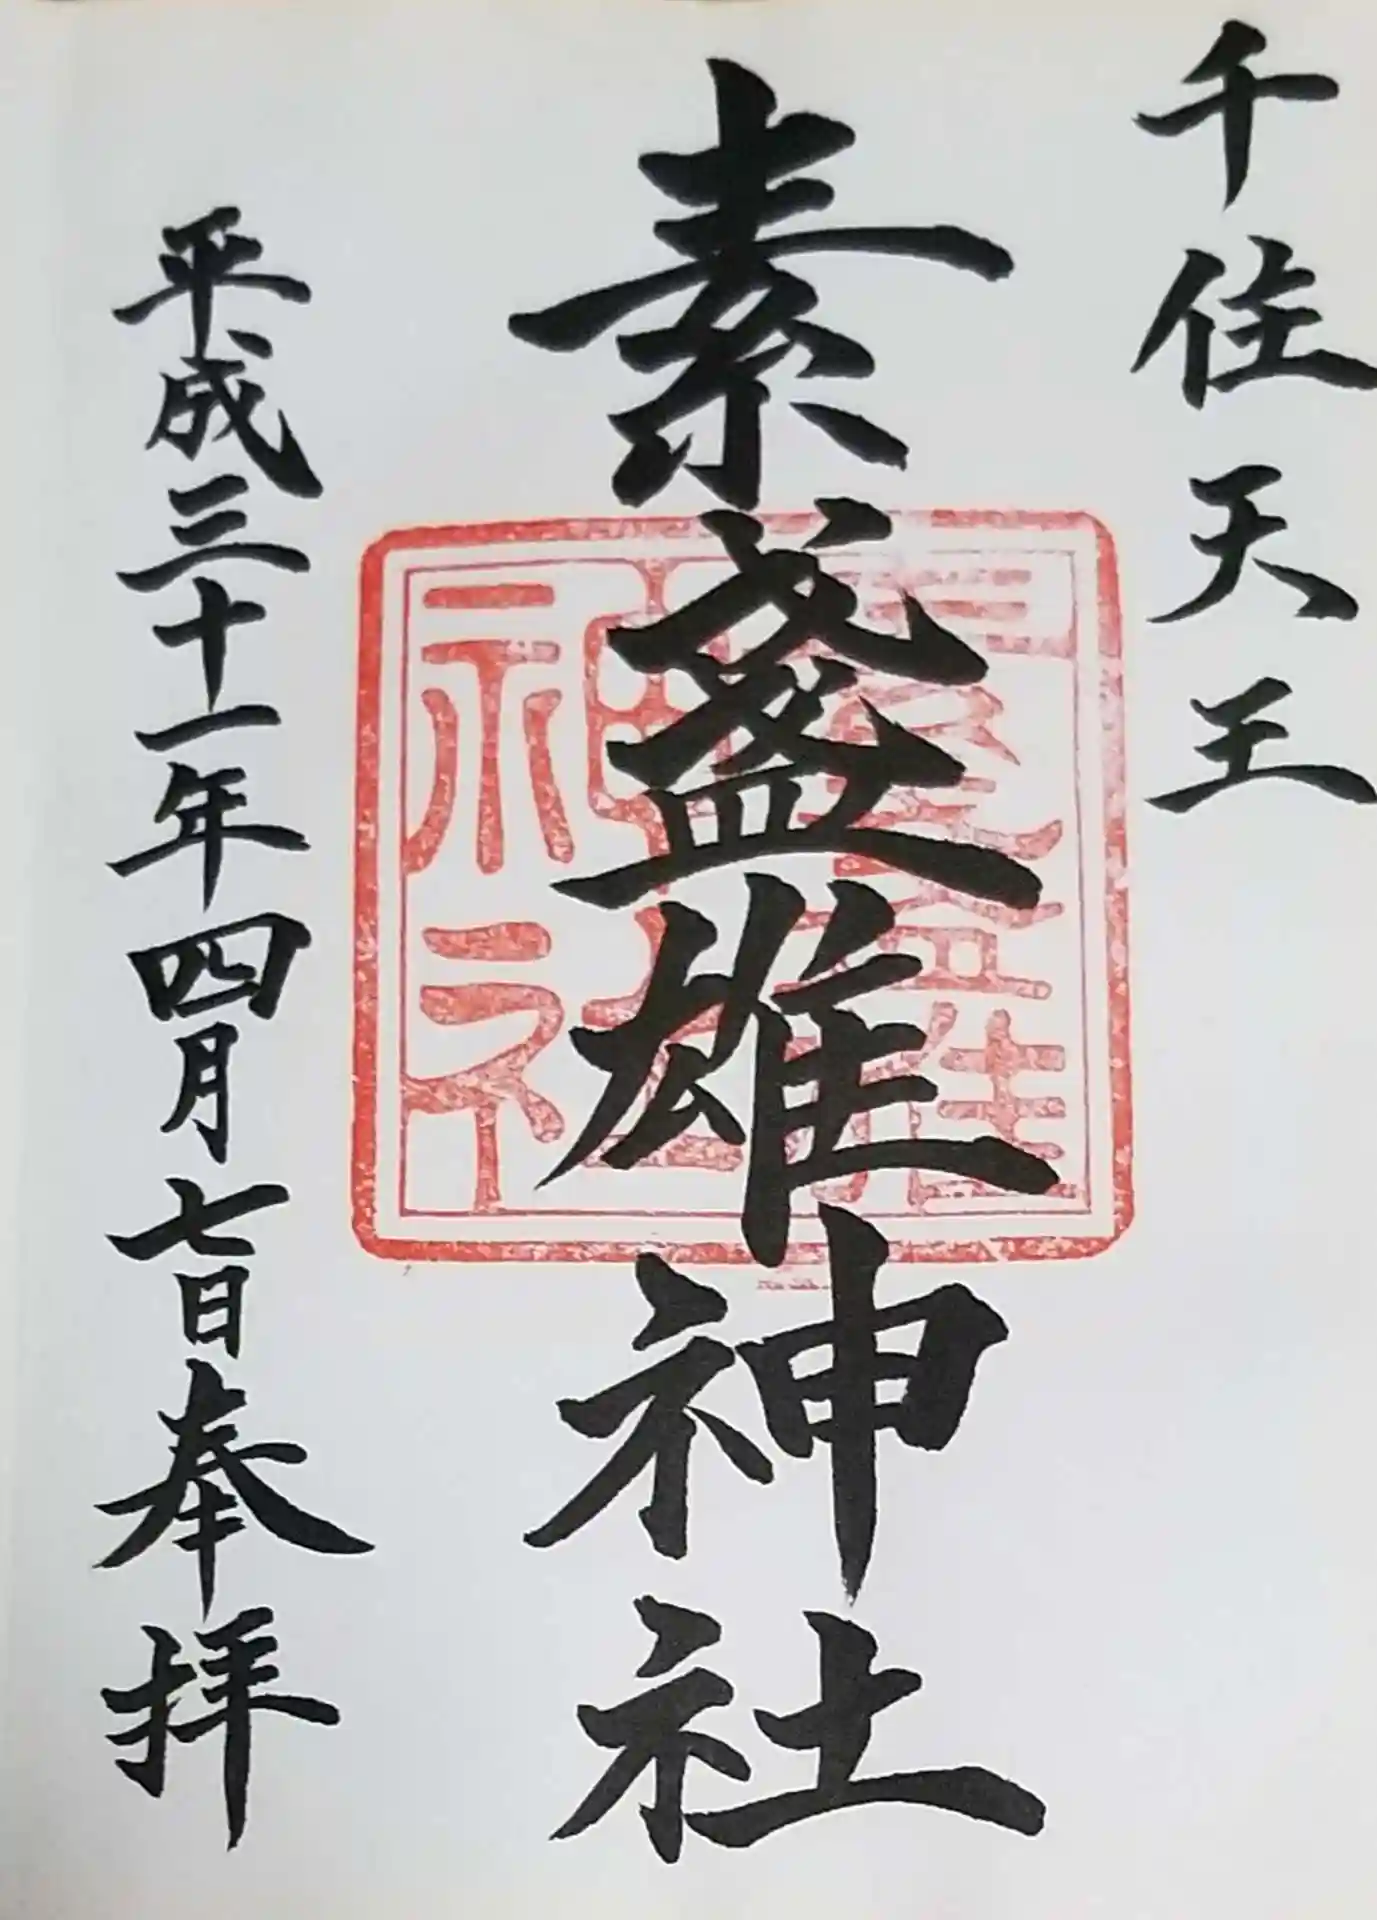 千住天王
素盞雄神社
素盞雄神社
平成三十一年四月七日奉拝